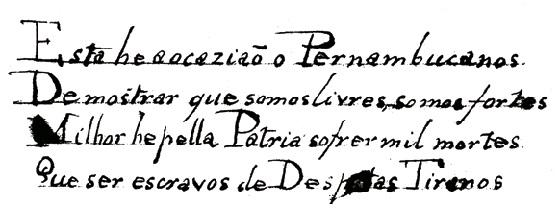 Esta he a ocazião o Pernambucanos
Demostrar que somos livres, somos fortes
Milhor he pella Patria sofrer mil mortes
Que ser escravos de Despotas Tiranos